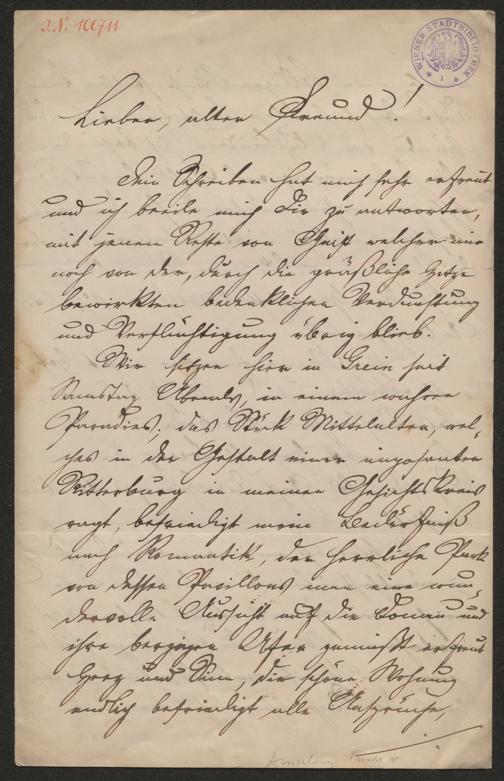 J. N. 100711
WIENER STADTBIBLIOTHEK
Lieber, alter Freund!
Dein Schreiben hat mich sehr erfreut
und ich beeile mich Dir zu antworten,
mit jenem Reste von Geist welcher mir
noch von der, durch die gräßliche Hitze
bewirkten bedenklichen Verdunstung
und Verflüchtigung übrig blieb.
Wir sitzen hier in Grein seit
Samstag Abends, in einem wahren
Paradies; das Stück Mittelalter, wel-
ches in der Gestalt einer imposanten
Ritterburg in meinen Gesichtskreis
ragt, befriedigt mein Bedürfniß
nach Romantik, der herrliche Park
von dessen Pavillons man eine wun-
dervolle Aussicht auf die Donau und
ihre bergigen Ufer genießt erfreut
Herz und Sinn, die schöne Wohnung
endlich befriedigt alle Ansprüche,